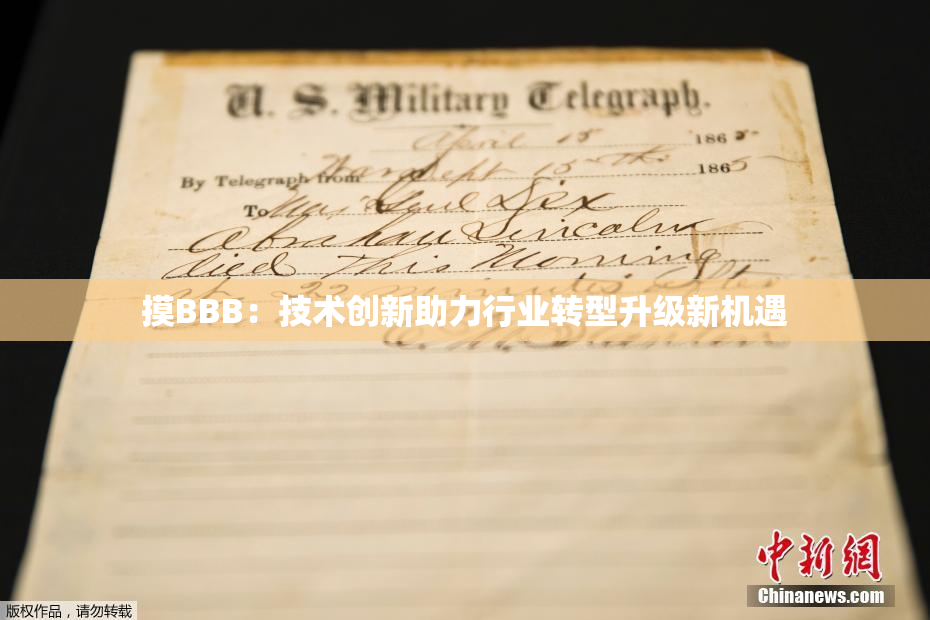 U. S. Military Telegraph.
April 15 1865
By Telegraph from War Dept 15th 1865
To Maj Genl Dix
Abraham Lincoln
died This Morning
at 22 minutes after
摸BBB：技术创新助力行业转型升级新机遇
E. M. Stanton
中新网
Chinanews.com
版权作品，请勿转载